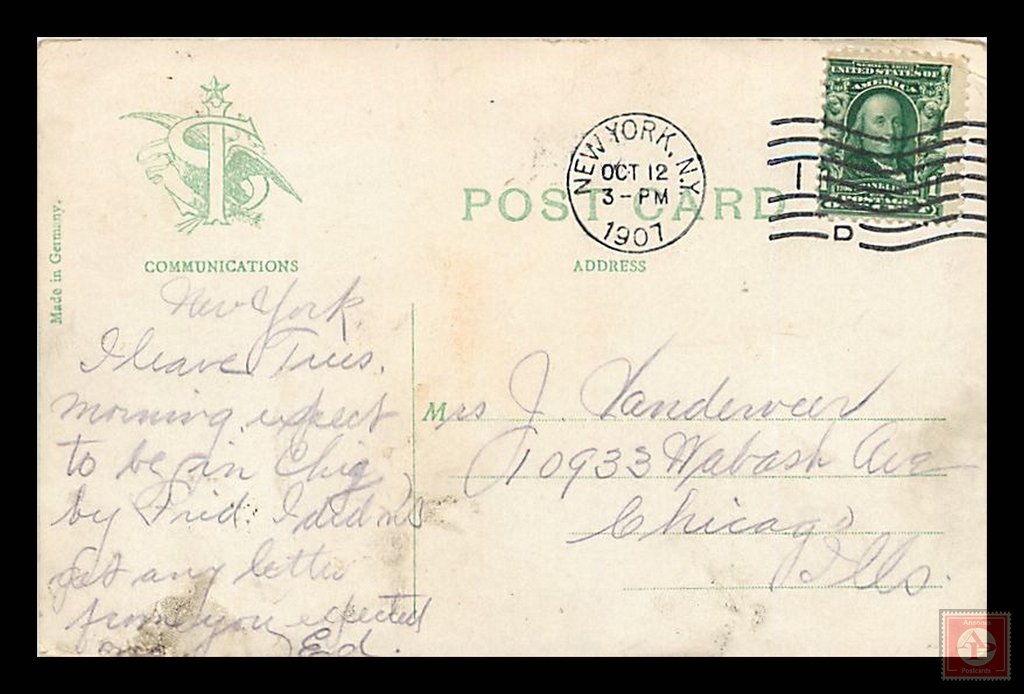 SERIES 1902
UNITED STATES OF
AMERICA
FRANKLIN
POSTAGE
NEW YORK, N.Y.
OCT 12
3-PM
1907
1
D
POST CARD
Made in Germany.
COMMUNICATIONS
ADDRESS
New York.
I leave Tues.
morning expect
to be in Chig
by Frid. I did not
get any letter
from you expected
one Ed.
Mrs J. Vanderveer
10933 Wabash Ave
Chicago
Ills.
Postcards